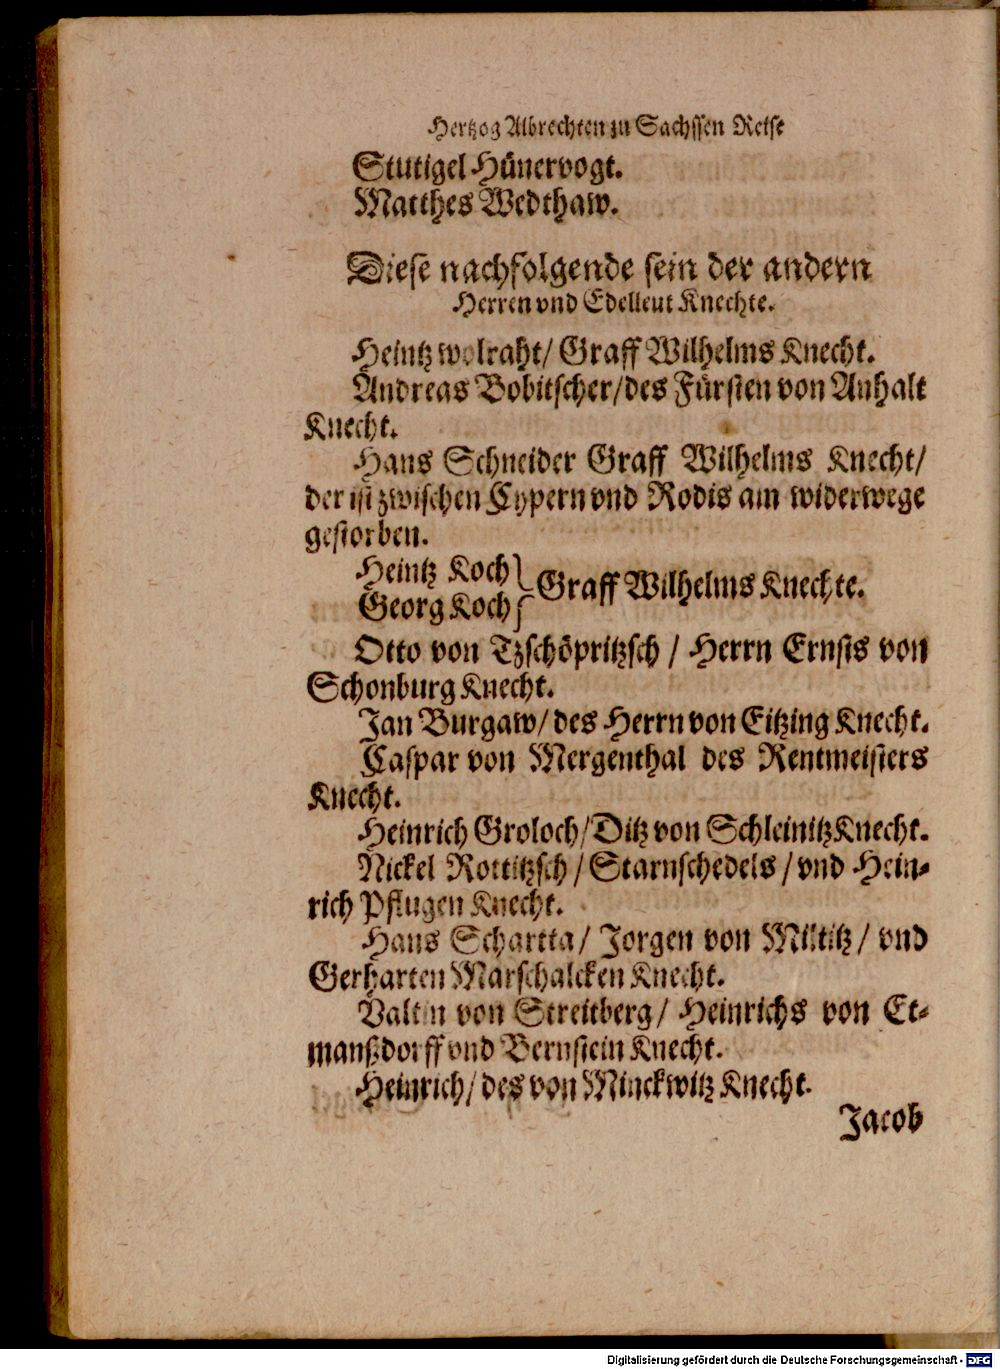 Hertzog Albrechten zu Sachssen Reise
Stutigel Hünervogt.
Matthes Wedthaw.
Diese nachfolgende sein der andern
Herren vnd Edelleut Knechte.
Heintz wolraht/ Graff Wilhelms Knecht.
Andreas Bobitscher/des Fürsten von Anhalt
Knecht.
Hans Schneider Graff Wilhelms Knecht/
der ist zwischen Cypern vnd Rodis am widerwege
gestorben.
Heintz Koch
Georg Koch } Graff Wilhelms Knechte.
Otto von Tzschöpritzsch / Herrn Ernsts von
Schonburg Knecht.
Jan Burgaw/ des Herrn von Eitzing Knecht.
Caspar von Mergenthal des Rentmeisters
Knecht.
Heinrich Groloch/Ditz von Schleinitz Knecht.
Nickel Rottitzsch / Starnschedels / vnd Hein-
rich Pflugen Knecht.
Hans Schartta/ Jorgen von Miltitz / vnd
Gerharten Marschalcken Knecht.
Valtin von Streitberg/ Heinrichs von Et-
manßdorff vnd Bernstein Knecht.
Heinrich/ des von Minckwitz Knecht.
Jacob
Digitalisierung gefördert durch die Deutsche Forschungsgemeinschaft - DFG